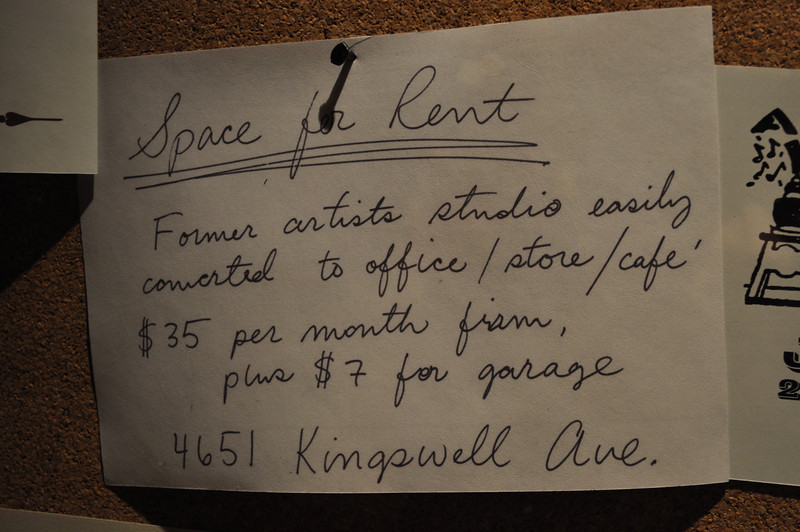 Space for Rent
Former artists studio easily
converted to office/store/café
$35 per month firm,
plus $7 for garage
4651 Kingswell Ave.